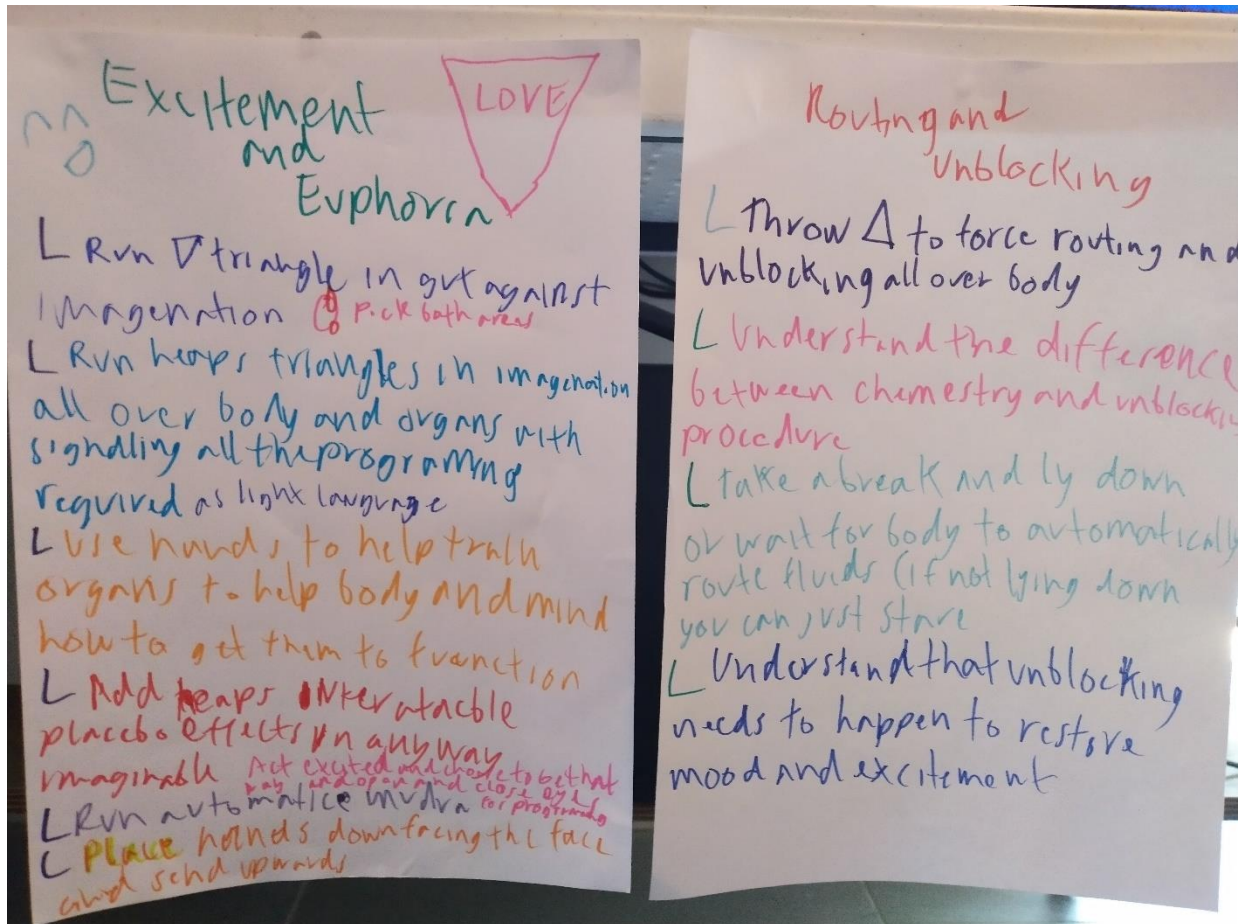 Excitement
and
Euphoria
LOVE
L Run ▽ triangle in gut against
imagenation Pick both areas
L Run heaps triangles in imagenation
all over body and organs with
signalling all the programing
required as light language
L Use hands to help train
organs to help body and mind
how to get them to function
L Add heaps
placebo effects in anyway
imaginable Act excited and chose to be that
way and open and close eyes
L Run automatice mudra for programing
L Place hands down facing the face
and send upwards
Routing and
unblocking
L Throw △ to force routing and
unblocking all over body
L Understand the difference
between chemestry and unblocking
procedure
L take a break and ly down
or wait for body to automatically
route fluids (if not lying down
you can just stare
L Understand that unblocking
needs to happen to restore
mood and excitement